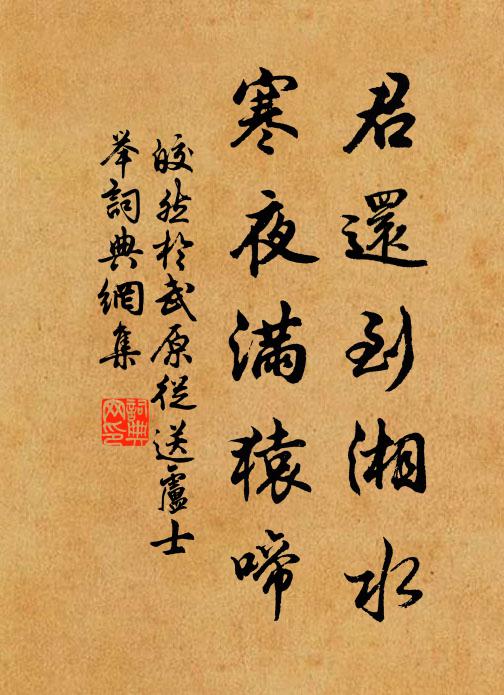 君還到湘水
寒夜滿猿啼
皎然於武原從送盧士
举詞典網集
詞典網印